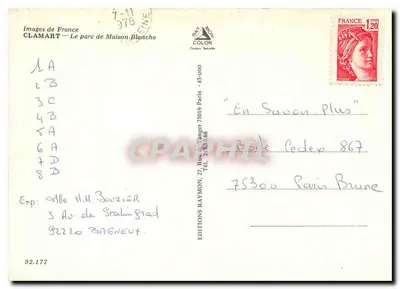 Images de France
CLAMART — Le parc de Maison Blanche
7-11
978
SEINE
RAYMON
COLOR
FRANCE
1,20
1A
2B
3C
4B
5A
6A
7D
8B
"En Savoir Plus"
Poste Cedex 867
75300 Paris Brune
Exp: Mlle M.M. BOUZIER
3 Av de Stalingrad
92220 BAGNEUX
EDITIONS RAYMON, 27, Rue de Tanger 75019 Paris
CPARAMA
92.177